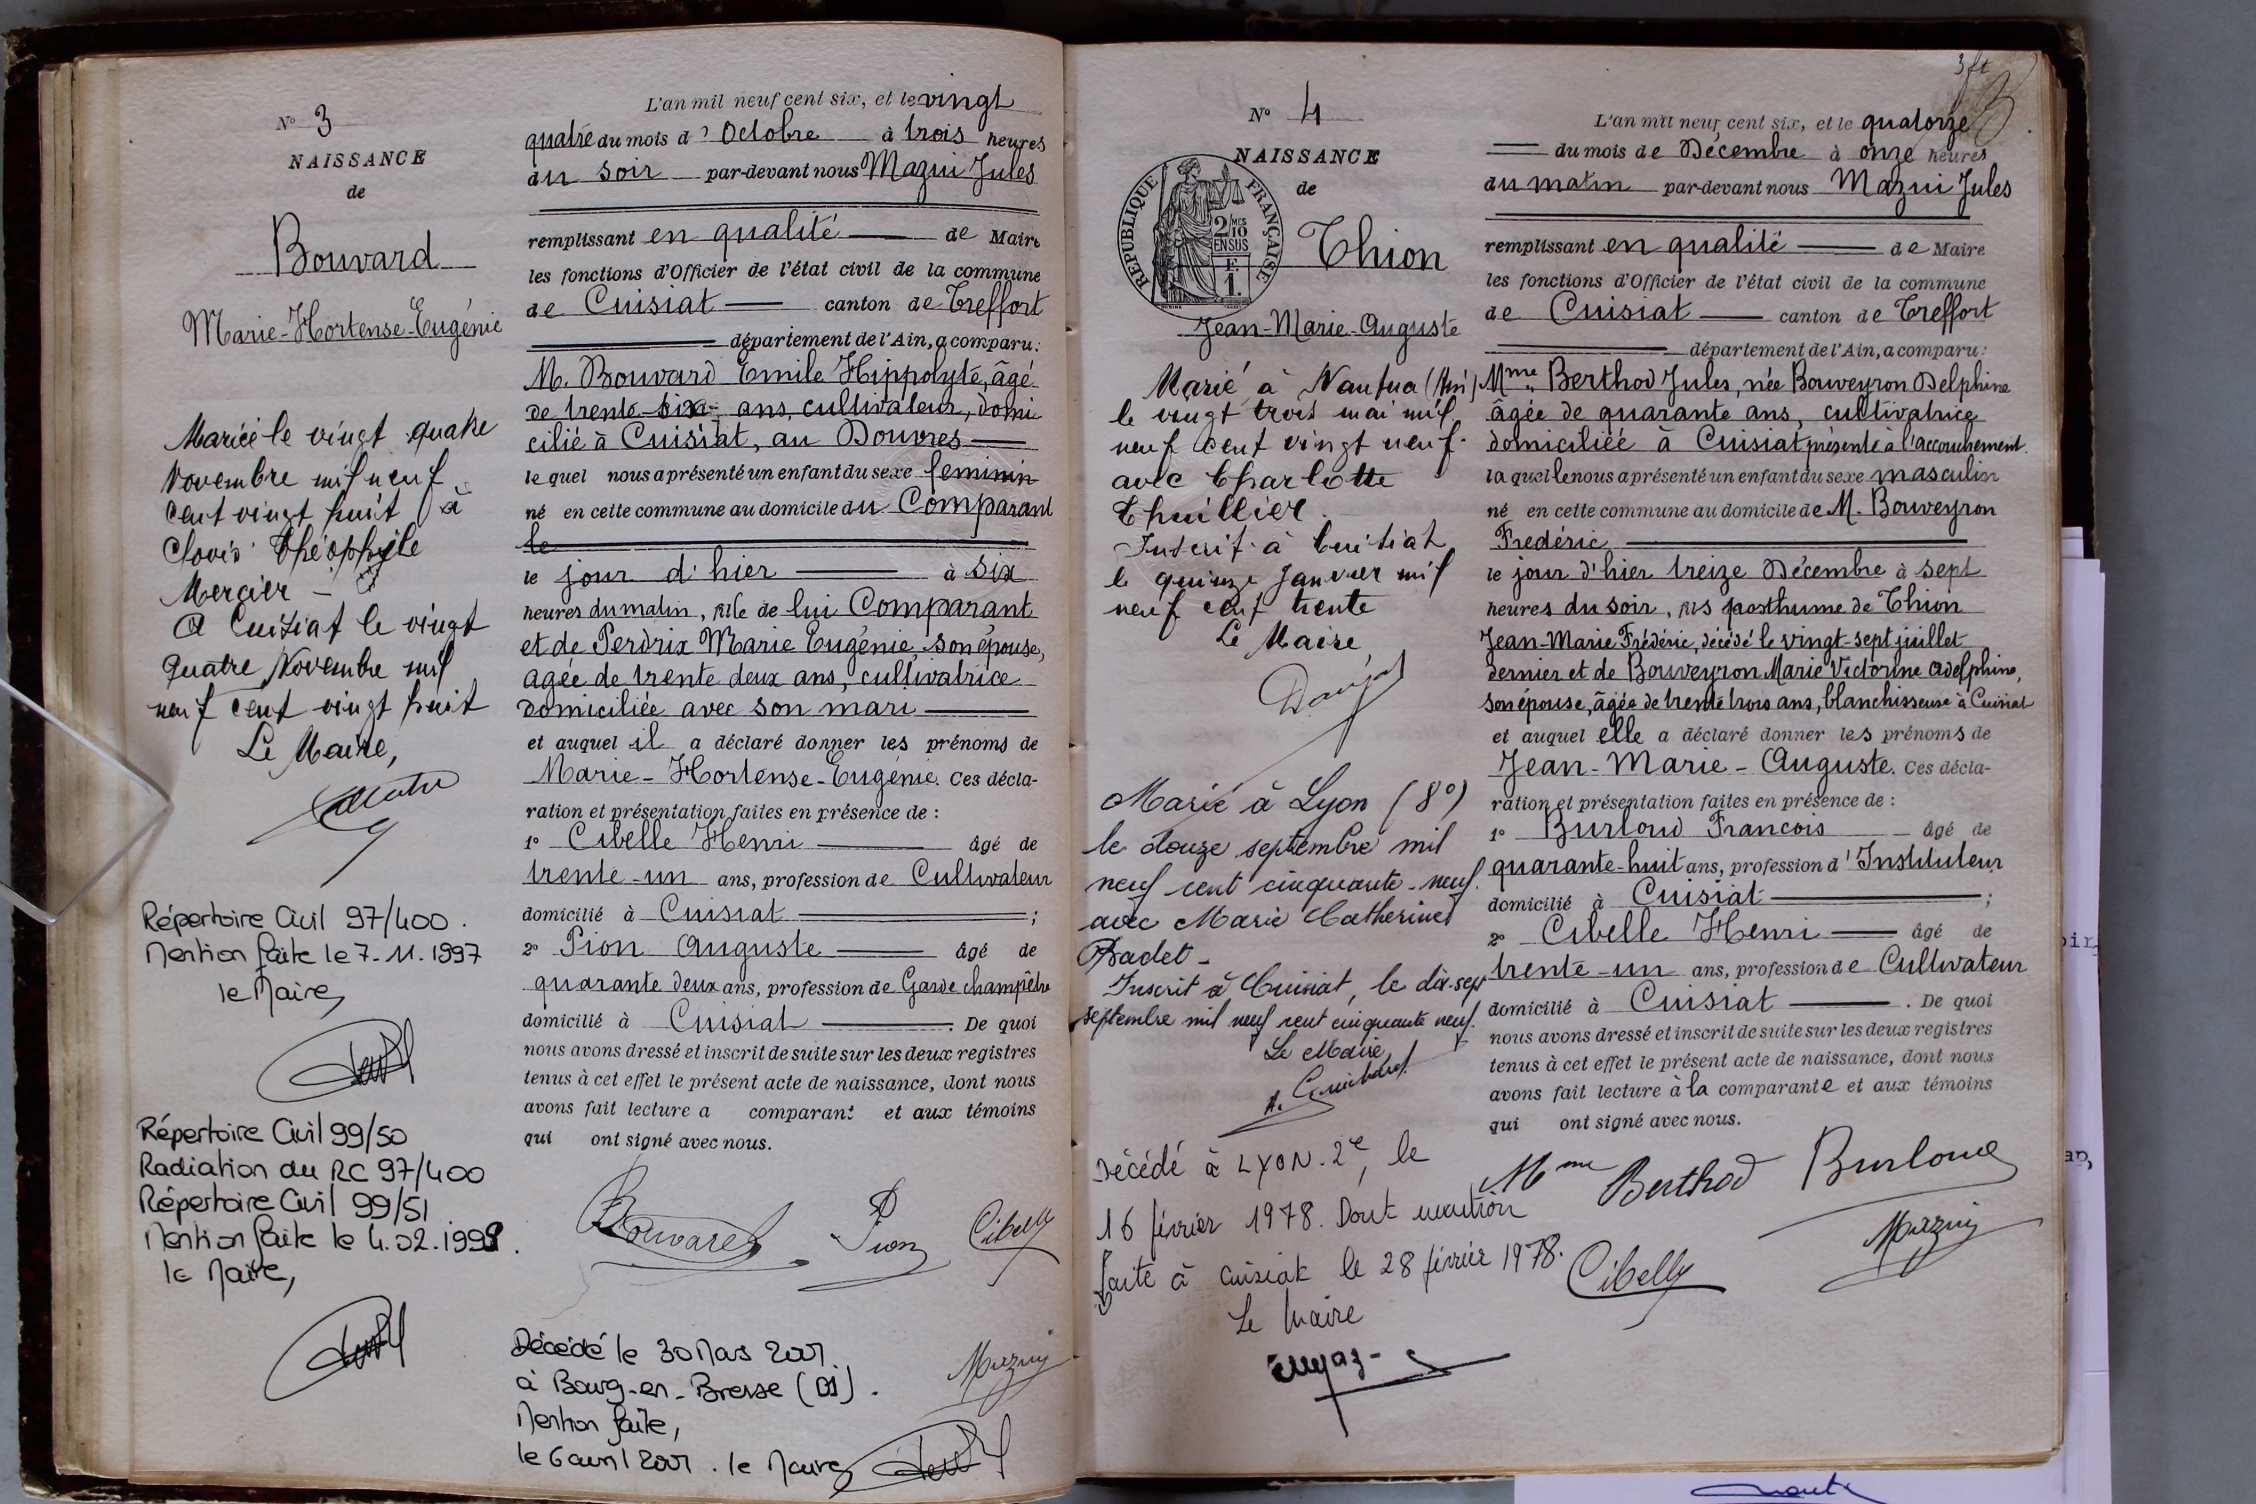 N° 3
NAISSANCE
de
Bouvard
Marie-Hortense-Eugénie
Mariée le vingt quatre
Novembre mil neuf
cent vingt huit à
Clovis Théophile
Mercier -
A Cuisiat le vingt
quatre Novembre mil
neuf cent vingt huit
Le Maire,
Répertoire Civil 97/400.
Mention faite le 7-11.1997
le Maire,
Répertoire Civil 99/50
Radiation du RC 97/400
Répertoire Civil 99/51
Mention faite le 4.02.1999.
le Maire,
L'an mil neuf cent six, et le vingt
quatre du mois d'Octobre à trois heures
du soir par-devant nous Mazui Jules
remplissant en qualité de Maire
les fonctions d'Officier de l'état civil de la commune
de Cuisiat canton de Treffort
département de l'Ain, a comparu:
M. Bouvard Emile Hippolyte, âgé
de trente-six ans, cultivateur, domi
cilié à Cuisiat, au Douvres
le quel nous a présenté un enfant du sexe féminin
né en cette commune au domicile du Comparant
le
le jour d'hier à six
heures du matin, fille de lui Comparant
et de Perdrix Marie Eugénie, son épouse,
agée de trente deux ans, cultivatrice
domiciliée avec son mari
et auquel il a déclaré donner les prénoms de
Marie-Hortense-Eugénie. Ces décla-
ration et présentation faites en présence de :
1° Cibelle Henri âgé de
trente-un ans, profession de Cultivateur
domicilié à Cuisiat ;
2° Pion Auguste âgé de
quarante deux ans, profession de Garde champêtre
domicilié à Cuisiat. De quoi
nous avons dressé et inscrit de suite sur les deux registres
tenus à cet effet le présent acte de naissance, dont nous
avons fait lecture a comparant et aux témoins
qui ont signé avec nous.
Bouvard
Pion
Cibelly
Mazuy
Décédé le 30 Mars 2001
à Bourg-en-Bresse (01).
Mention faite,
le 6 avril 2001. le Maire
N° 4
NAISSANCE
de
REPUBLIQUE FRANÇAISE
2/10 MES
EN SUS
F.
1.
Thion
Jean-Marie-Auguste
Marié à Nantua (Ain)
le vingt trois mai mil
neuf cent vingt neuf.
avec Charlotte
Thuillier.
Inscrit à Cuisiat
le quinze Janvier mil
neuf cent trente
Le Maire
Marié à Lyon (8°)
le douze septembre mil
neuf cent cinquante-neuf.
avec Marie Catherine
Badet-
Inscrit à Cuisiat, le dix-sept
septembre mil neuf cent cinquante neuf.
Le Maire,
A. Guichard
Décédé à LYON. 2e, le
16 février 1978. Dont mention
faite à Cuisiat le 28 février 1978.
Le Maire
3 ft
L'an mil neuf cent six, et le quatorze
du mois de Décembre à onze heures
du matin par-devant nous Mazui Jules
remplissant en qualité de Maire
les fonctions d'Officier de l'état civil de la commune
de Cuisiat canton de Treffort
département de l'Ain, a comparu:
Mme Berthod Jules, née Bouveyron Delphine
âgée de quarante ans, cultivatrice
domiciliée à Cuisiat présente à l'accouchement.
la quelle nous a présenté un enfant du sexe masculin
né en cette commune au domicile de M. Bouveyron
Frédéric
le jour d'hier treize Décembre à sept
heures du soir, fils posthume de Thion
Jean-Marie Frédéric, décédé le vingt-sept juillet
dernier et de Bouveyron Marie Victorine Adelphine,
son épouse, âgée de trente trois ans, blanchisseuse à Cuisiat
et auquel elle a déclaré donner les prénoms de
Jean-Marie-Auguste. Ces décla-
ration et présentation faites en présence de :
1° Burloud François âgé de
quarante-huit ans, profession d'Instituteur
domicilié à Cuisiat ;
2° Cibelle Henri âgé de
trente-un ans, profession de Cultivateur
domicilié à Cuisiat. De quoi
nous avons dressé et inscrit de suite sur les deux registres
tenus à cet effet le présent acte de naissance, dont nous
avons fait lecture à la comparante et aux témoins
qui ont signé avec nous.
Mme Berthod
Burloud
Cibelly
Mazuy